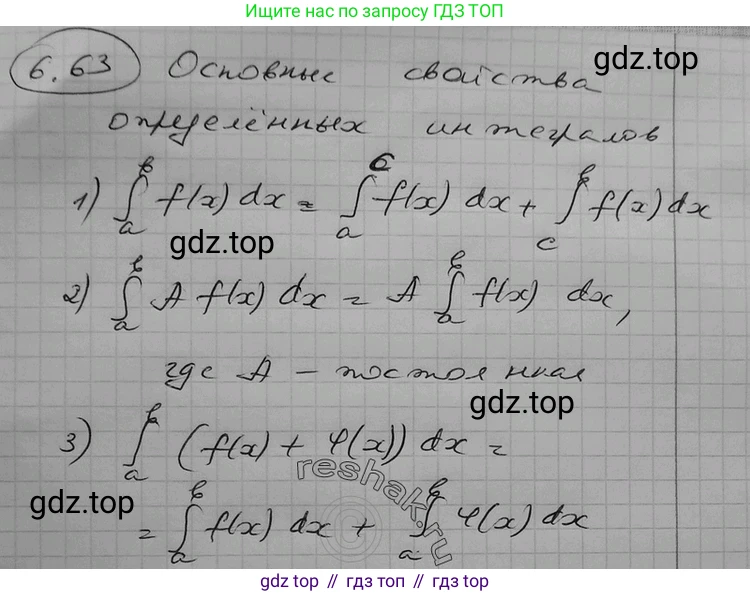 Ищите нас по запросу ГДЗ ТОП
gdz.top
6.63 Основные свойства
определённых интегралов
1) ∫_a^b f(x) dx = ∫_a^c f(x) dx + ∫_c^b f(x) dx
gdz.top
2) ∫_a^b A f(x) dx = A ∫_a^b f(x) dx,
где A – постоянная
gdz.top
3) ∫_a^b (f(x) + φ(x)) dx =
reshak.ru
gdz.top
= ∫_a^b f(x) dx + ∫_a^b φ(x) dx
gdz top // гдз топ // gdz top